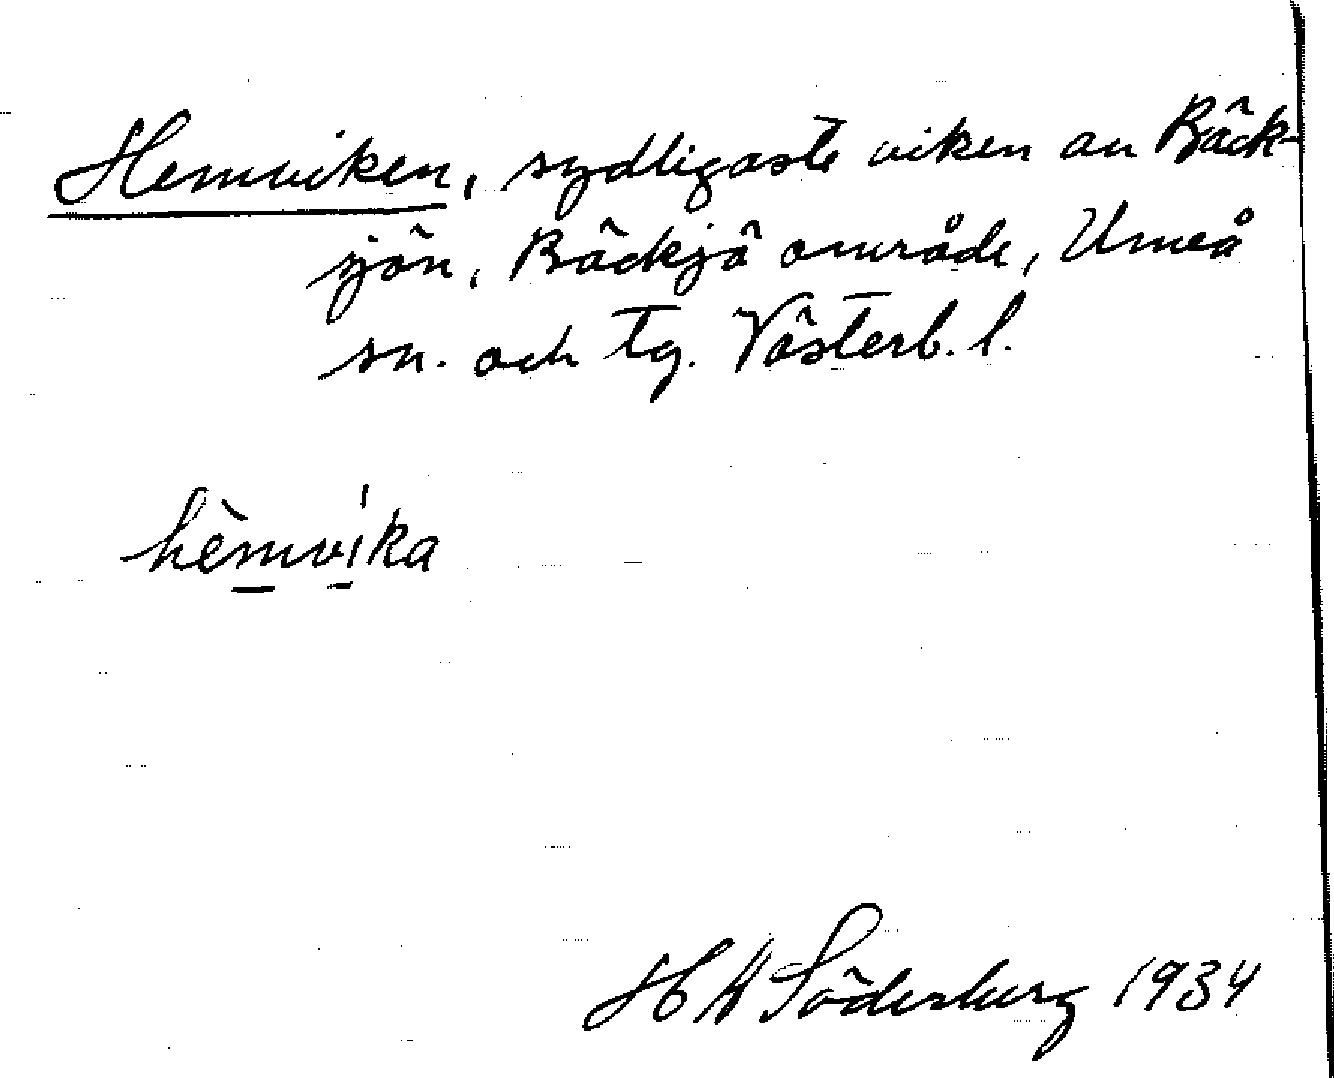 Hemviken, sydligaste viken av Bäck-
sjön, Bäcksjö område, Umeå
sn. och tg. Västerb. l.
hèmvíka
H A Söderberg 1934